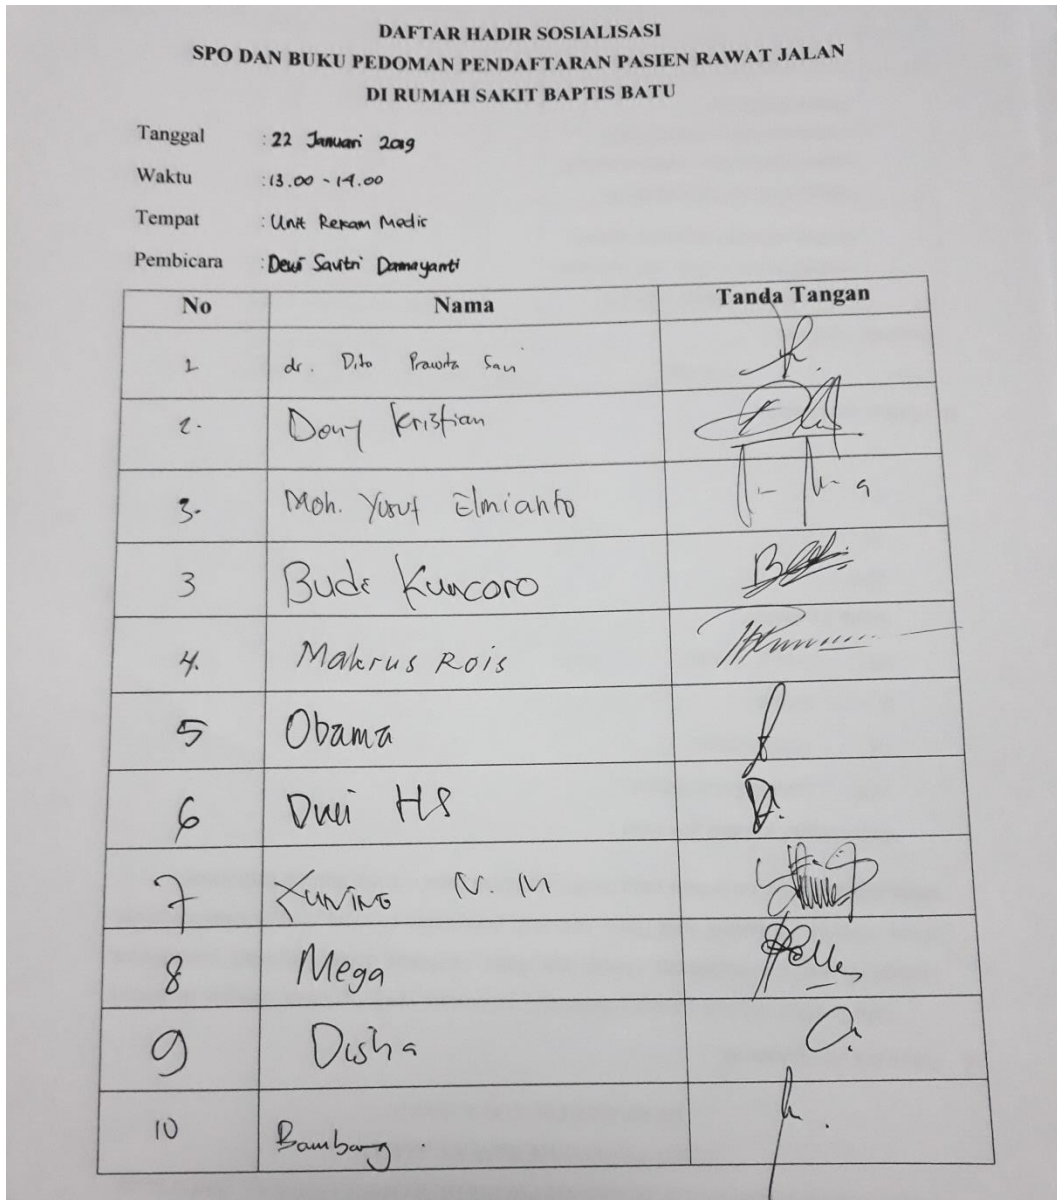 DAFTAR HADIR SOSIALISASI
SPO DAN BUKU PEDOMAN PENDAFTARAN PASIEN RAWAT JALAN
DI RUMAH SAKIT BAPTIS BATU
Tanggal : 22 Januari 2019
Waktu : 13.00 - 14.00
Tempat : Unit Rekam Medis
Pembicara : Dewi Savitri Damayanti
No Nama Tanda Tangan
1 dr. Dito
2. Dony Kristian
3. Moh. Yusuf Elmianto
3 Budi Kuncoro
4. Makrus Rois
5 Obama
6 Dwi HS
7 N. M
8 Mega
9
10 Bambang.